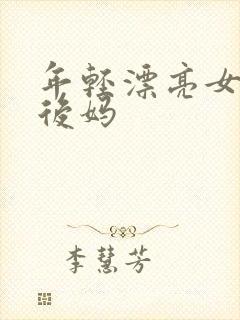 年轻漂亮女
後妈
李慧芳